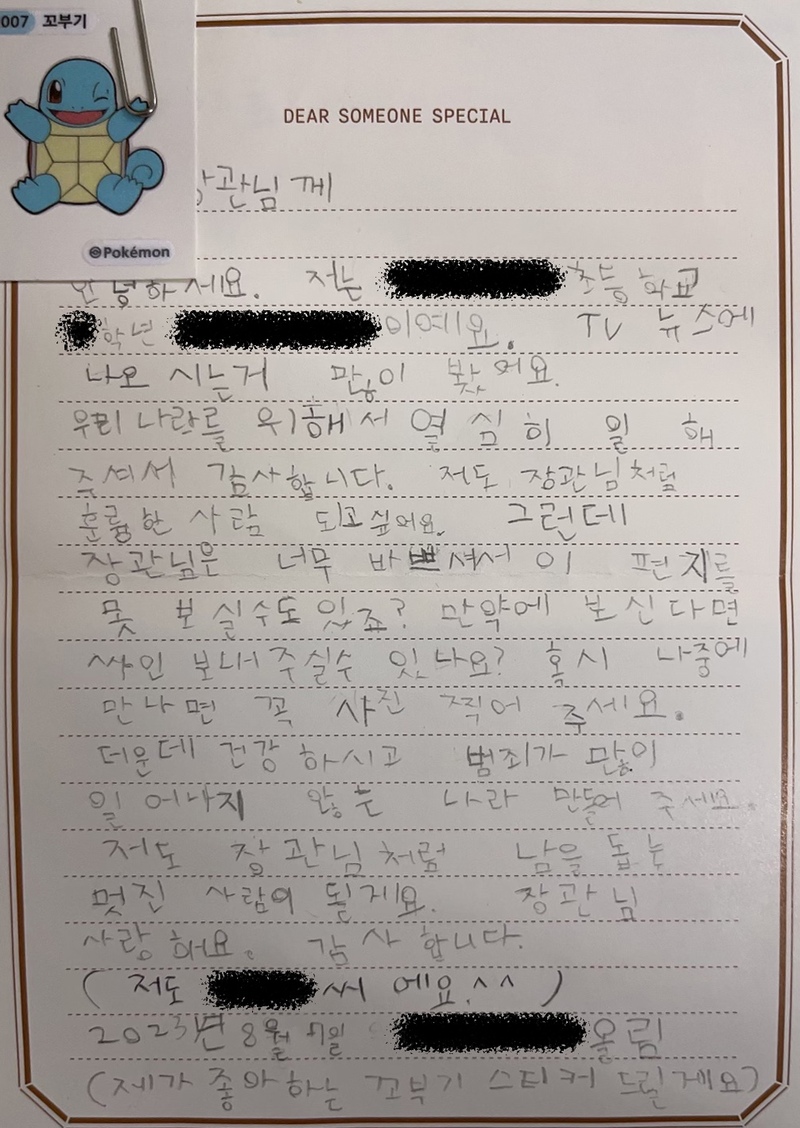 007 꼬부기
©Pokémon
DEAR SOMEONE SPECIAL
장관님께
안녕하세요. 저는 초등학교
학년 이예요. TV 뉴스에
나오시는거 많이 봤어요.
우리 나라를 위해서 열심히 일 해
주셔서 감사합니다. 저도 장관님처럼
훌륭한 사람 되고싶어요. 그런데
장관님은 너무 바쁘셔서 이 편지를
못 보실수도 있죠? 만약에 보신다면
싸인 보내주실수 있나요? 혹시 나중에
만나면 꼭 사진 찍어 주세요.
더운데 건강하시고 범죄가 많이
일어나지 않는 나라 만들어 주세요.
저도 장관님처럼 남을 돕는
멋진 사람이 될게요. 장관님
사랑해요. 감사합니다.
(저도 씨예요.^^)
2023년 8월 7일 올림
(제가 좋아하는 꼬부기 스티커 드릴게요)